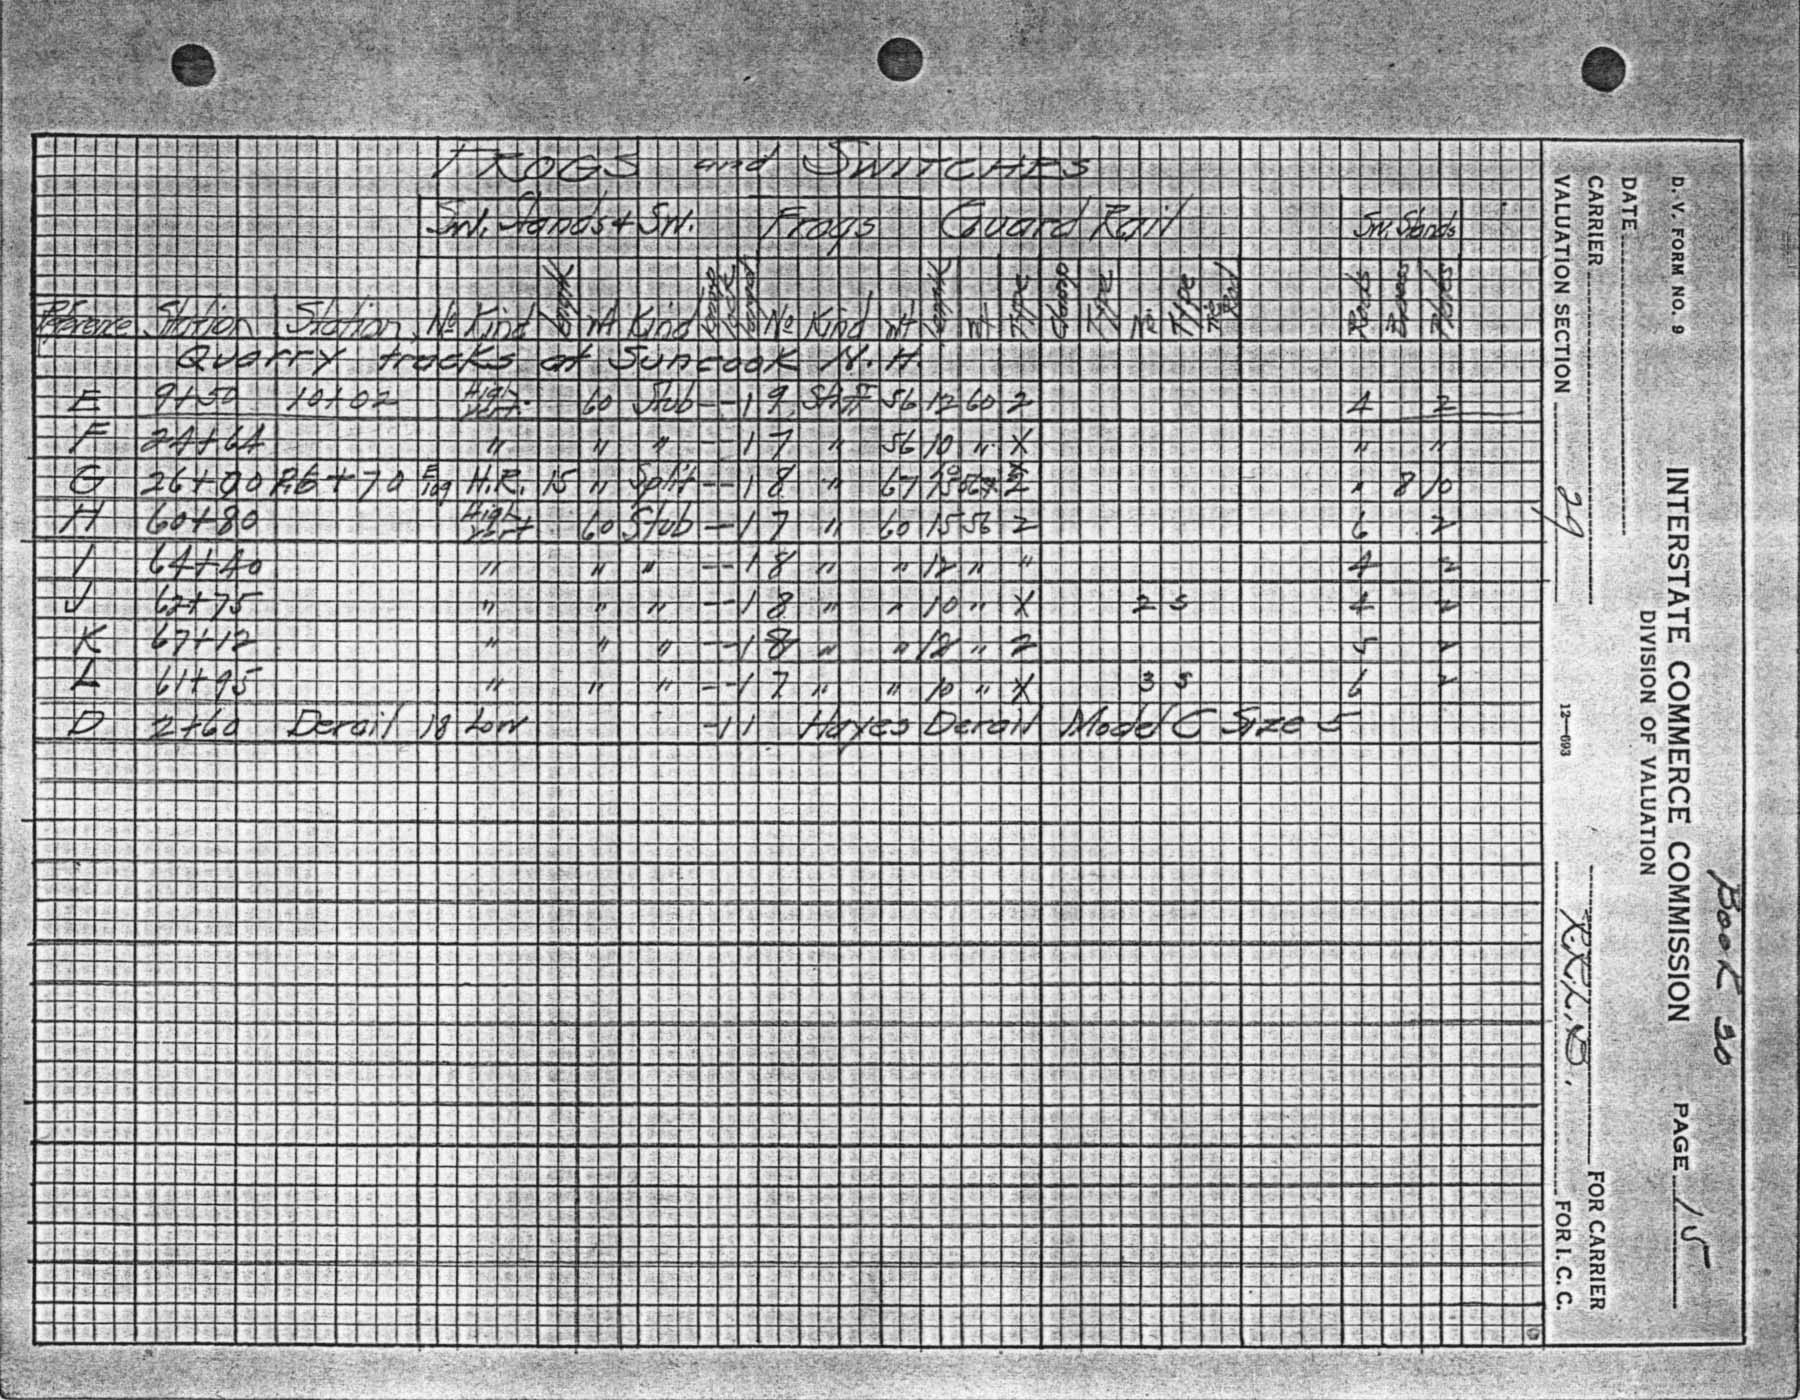 FROGS and SWITCHES
Sw. Stands & Sw. Frogs Guard Rail Sw. Stands
Reference Station Station No Kind Length Wt Kind No Kind Wt Length Wt Type Clamp Type No Type Tie Rods Braces
Quarry tracks at Suncook N. H.
E 9+50 10+02 High 60 Stub --1 9 Stiff 56 12 60 2 4 2
F 24+64 " " " --1 7 " 56 10 " X " "
G 26+00 + 70 H.R. 15 " Split --1 8 " 67 2 " 8 10
H 60+80 High 60 Stub --1 7 " 60 15 56 2 6 2
I 64+40 " " " --1 8 " " 12 " " 4 2
J 62+75 " " " --1 8 " " 10 " X 2 S 4 2
K 67+12 " " " --1 8 " " 12 " 2 5 2
L 61+95 " " " --1 7 " " 10 " X 3 S 6 2
D 2+60 Derail 18 Low -11 Hayes Derail Model C Size 5
Book 30
D. V. FORM NO. 9
INTERSTATE COMMERCE COMMISSION
PAGE 15
DIVISION OF VALUATION
DATE
CARRIER
FOR CARRIER
VALUATION SECTION 29
12—693
FOR I. C. C.